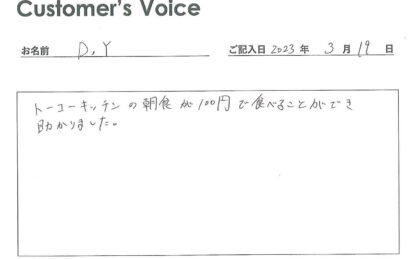 Customer's Voice
お名前 D.Y ご記入日 2023 年 3 月 19 日
トーコーキッチンの朝食が100円で食べることができ
助かりました。